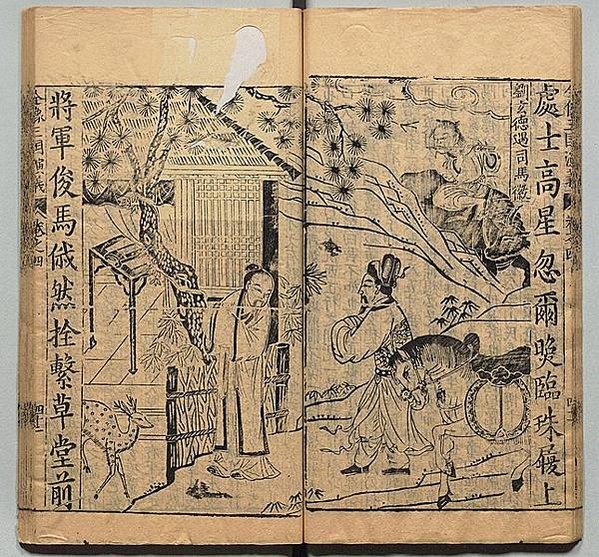 處士高星忽爾暎臨珠履上
劉玄德遇司馬徽
將軍俊馬俄然拴繫草堂前
全像三国演義
卷之四